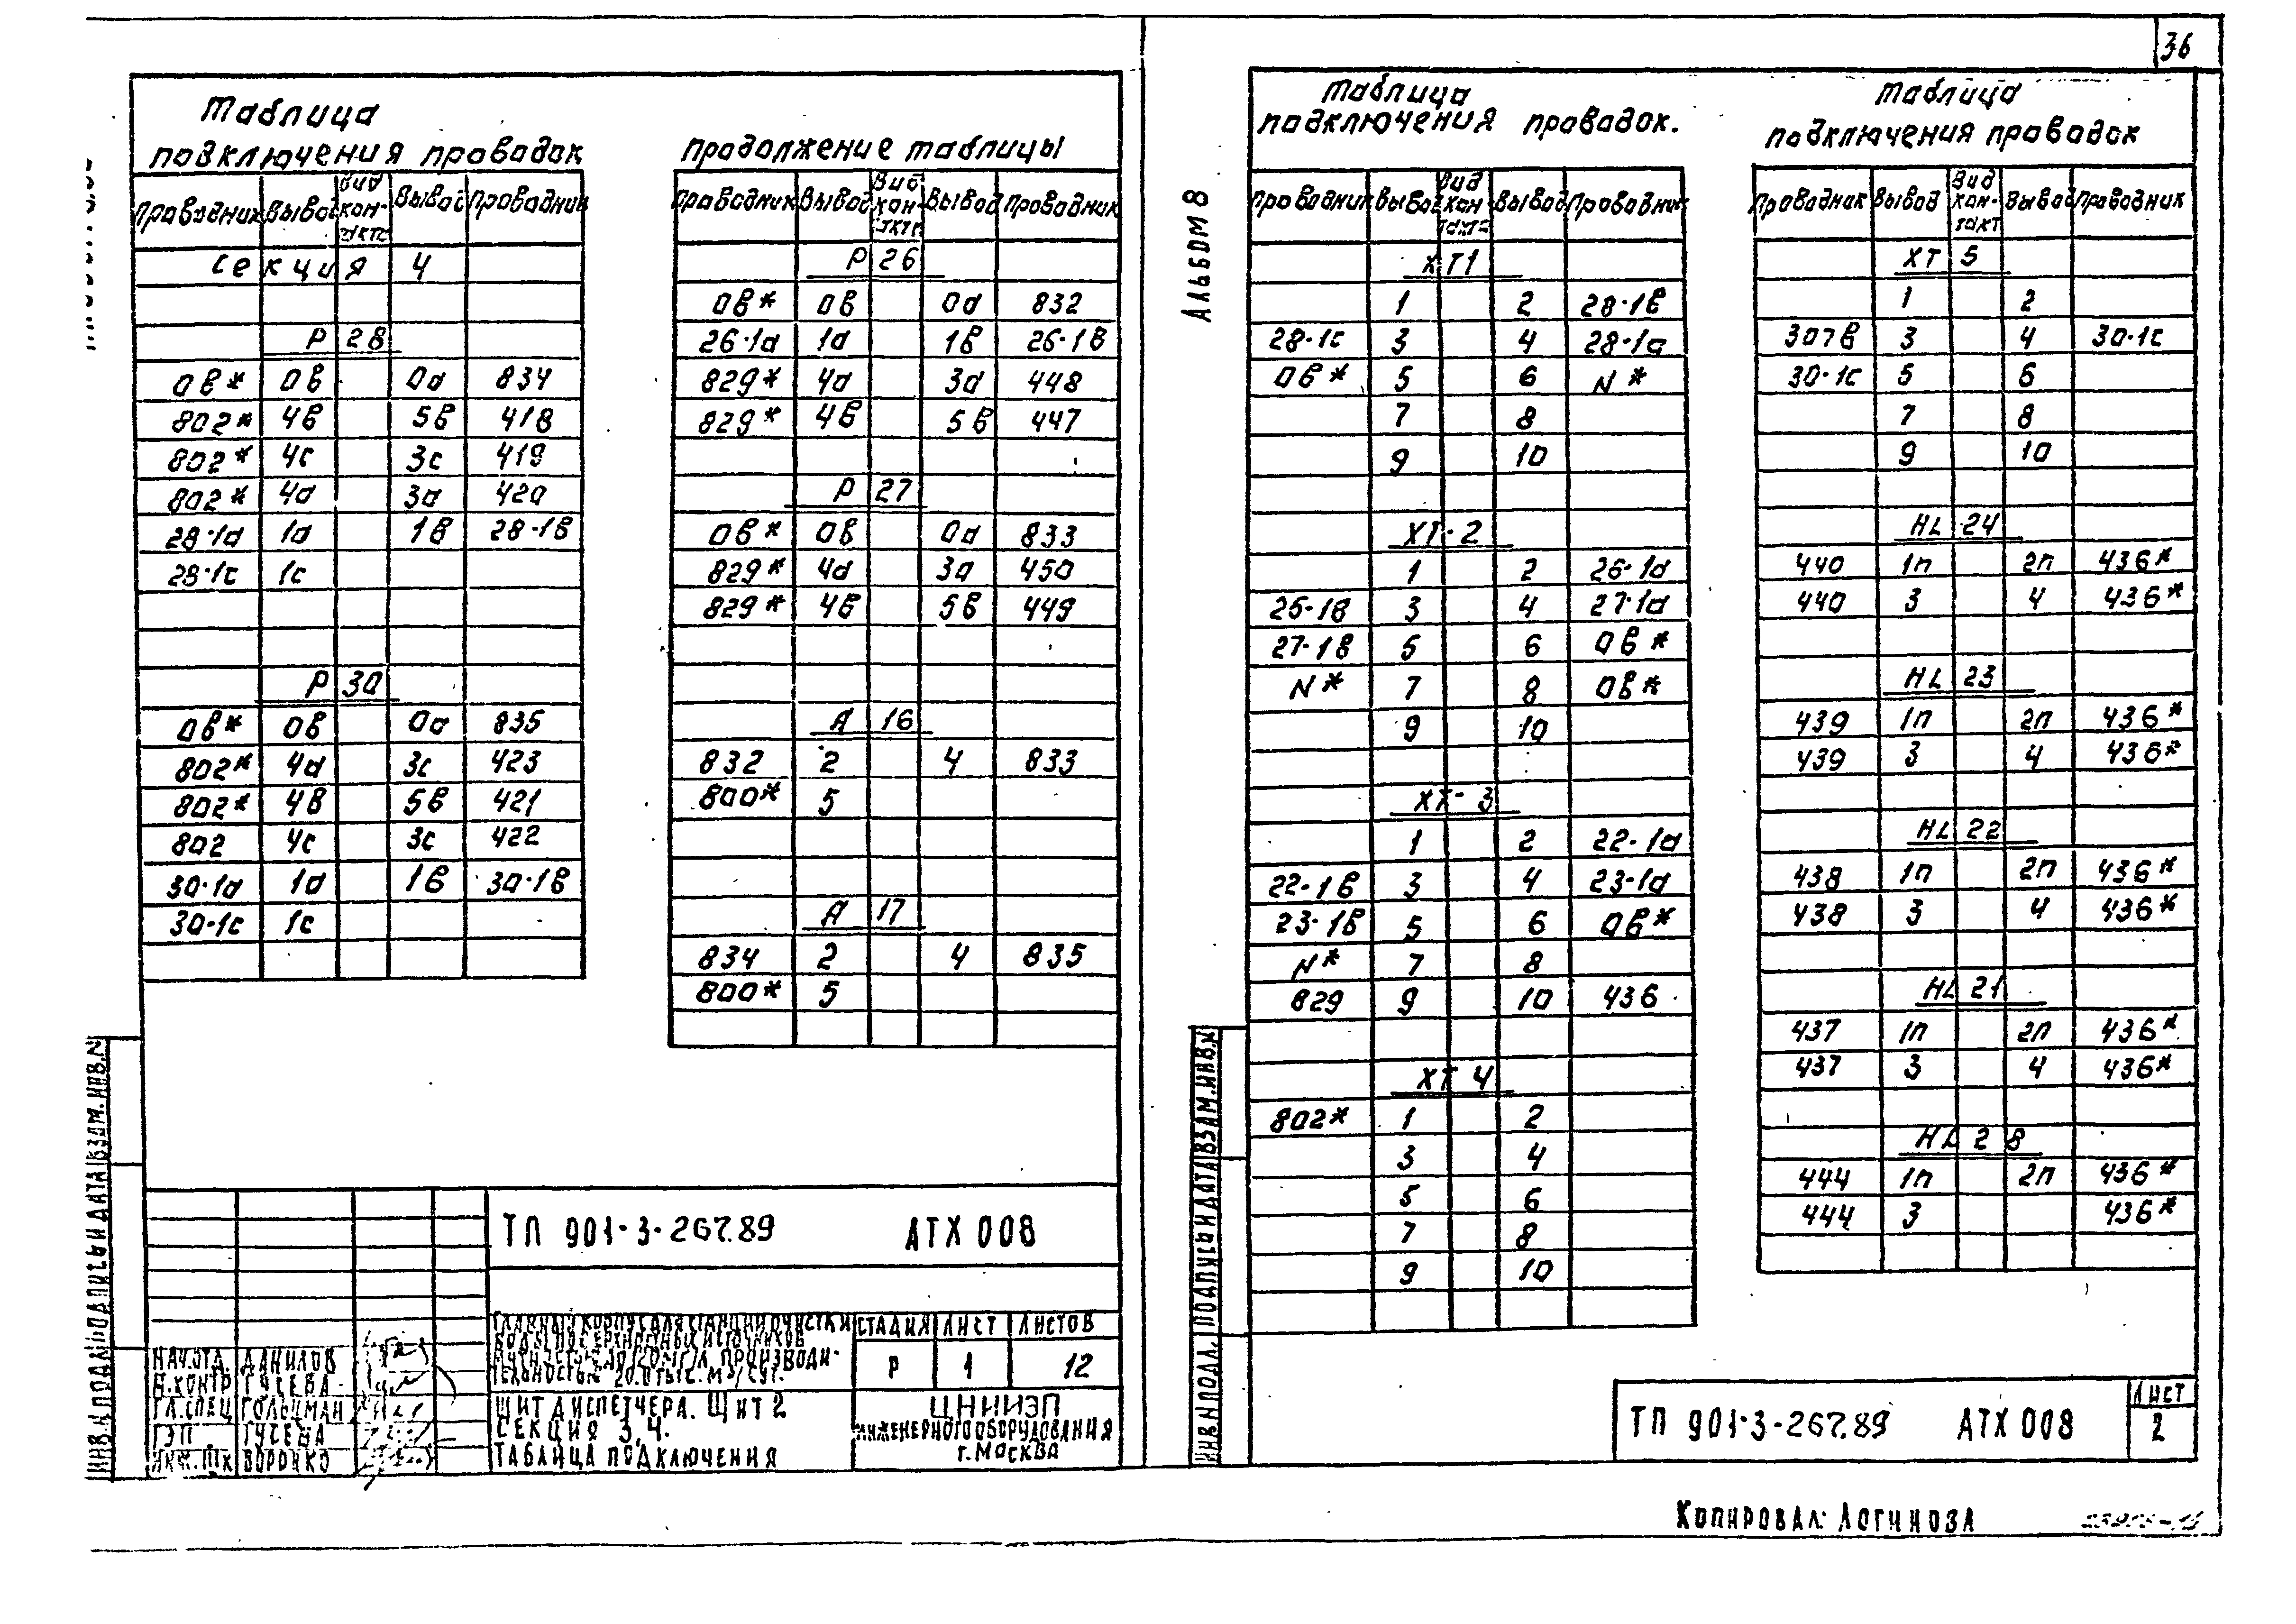 36
Таблица
подключения проводок
Проводник Вывод Вид кон-такта Вывод Проводник
Секция 4
Р 28
0в* 0в 0а 834
802* 4в 5в 418
802* 4с 3с 419
802* 4а 3а 420
28·1а 1а 1в 28·1в
28·1с 1с
Р 30
0в* 0в 0а 835
802* 4а 3с 423
802* 4в 5в 421
802 4с 3с 422
30·1а 1а 1в 30·1в
30·1с 1с
Продолжение таблицы
Проводник Вывод Вид кон-такт. Вывод Проводник
Р 26
0в* 0в 0а 832
26·1а 1а 1в 26·1в
829* 4а 3а 448
829* 4в 5в 447
Р 27
0в* 0в 0а 833
829* 4а 3а 450
829* 4в 5в 449
А 16
832 2 4 833
800* 5
А 17
834 2 4 835
800* 5
ТП 901-3-267.89 АТХ 008
Главный корпус для станции очистки
воды поверхностных источников
производи-
тельностью 20.0 тыс. м³/сут.
Стадия Лист Листов
Р 1 12
Щит диспетчера. Щит 2
Секция 3,4.
Таблица подключения
ЦНИИЭП
инженерного оборудования
г. Москва
Нач.отд. Данилов
Н.контр Гусева
Гл.спец Гольцман
ГЭП Гусева
Воронко
Инв.№ подл. Подпись и дата Взам.инв.№
Альбом 8
Таблица
подключения проводок.
Проводник Вывод Вид кон такт Вывод Проводник
ХТ1
1 2 28·1в
28·1с 3 4 28·1а
0в* 5 6 N*
7 8
9 10
ХТ·2
1 2 26·1а
26·1в 3 4 27·1а
27·1в 5 6 0в*
N* 7 8 0в*
9 10
ХТ-3
1 2 22·1а
22·1в 3 4 23·1а
23·1в 5 6 0в*
N* 7 8
829 9 10 436
ХТ 4
802* 1 2
3 4
5 6
7 8
9 10
Таблица
подключения проводок
Проводник Вывод Вид кон-такт Вывод Проводник
ХТ 5
1 2
307в 3 4 30·1с
30·1с 5 6
7 8
9 10
HL 24
440 1п 2п 436*
440 3 4 436*
HL 23
439 1п 2п 436*
439 3 4 436*
HL 22
438 1п 2п 436*
438 3 4 436*
HL 21
437 1п 2п 436*
437 3 4 436*
HL 28
444 1п 2п 436*
444 3 436*
Инв.№ подл. Подпись и дата Взам.инв.№
ТП 901-3-267.89 АТХ 008
Лист
2
Копировал: Логинова